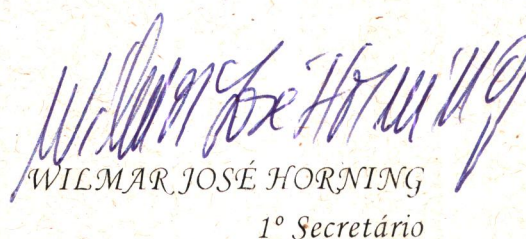 Wilmar José Horning
WILMAR JOSÉ HORNING
1º Secretário